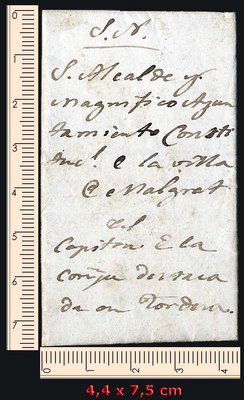 S. N.
S. Alcalde y
Magnifico Ayun
tamiento Consti
tucl. de la villa
de Malgrat
El
Capitan de la
compa. destaca
da en Tordera.
0 1 2 3 4 5 6 7
0 1 2 3 4
4,4 x 7,5 cm